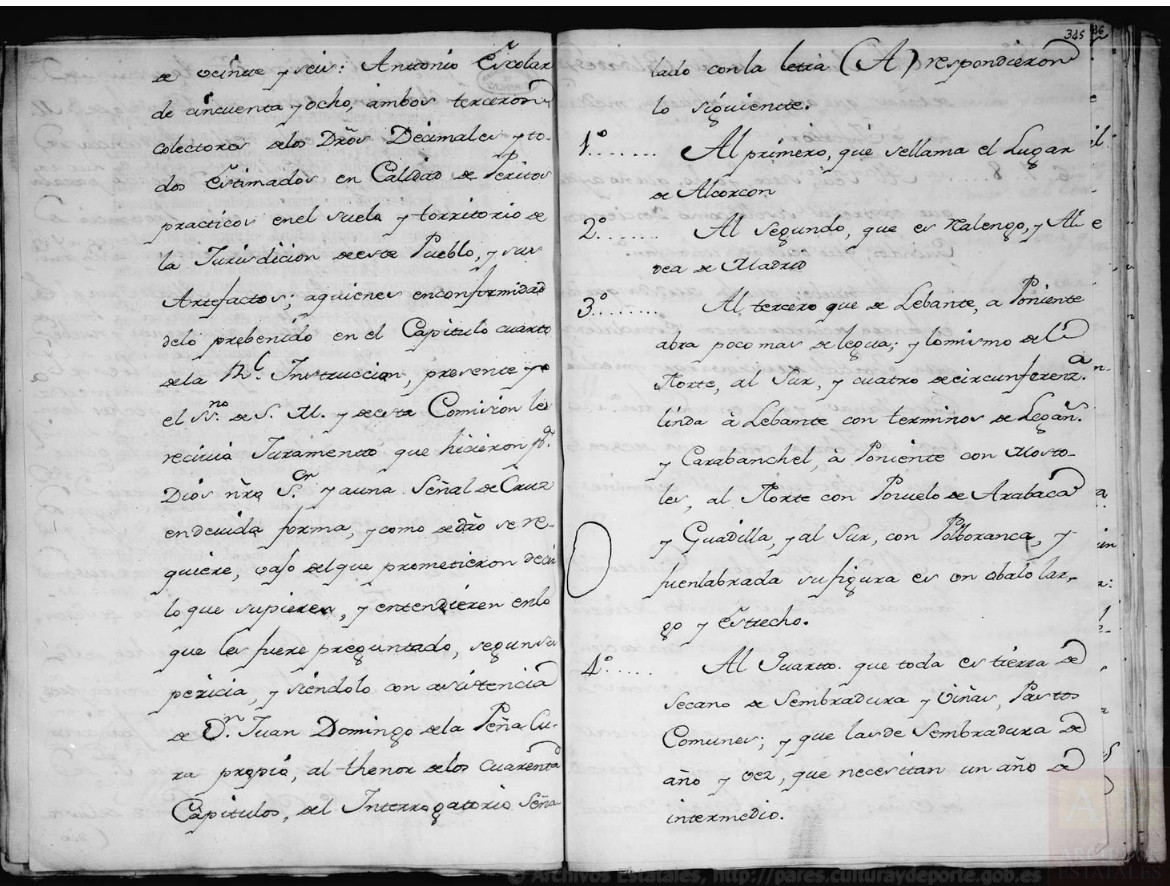 de veinte y seis: Antonio Escolar
de cincuenta y ocho, ambos terceros
colectores delos Dros Decimales y to-
dos estimados en Calidad de Peritos
practicos enel suelo y torritorio de
la Jurisdicion deeste Pueblo, y sus
Artefactos; aquienes enconformidad
delo prebenido en el Capitulo cuarto
dela Rl. Instruccion, presente yo
el SSno. de S. M. y deesta Comision les
recivia Juramento que hicieron pr.
Dios nro Sr. y auna Señal de Cruz
endevida forma, y como dedro se re-
quiere, vajo delque prometieron decir
lo que supieren, y entendieren enlo
que les fuere preguntado, segun su
pericia, y siendolo con asistencia
de Dn. Juan Domingo dela Peña Cu-
ra propio, al thenor delos cuarenta
Capitulos, del Interrogatorio Seña
345
lado conla letra (A) respondieron
lo siguiente.
1º....... Al primero, que sellama el Lugar
de Alcorcon
2....... Al Segundo, que es Ralengo, y Al
dea de Madrid
3º....... Al tercero que de Lebante, a Poniente
abra poco mas de legua; y lomismo de el
Norte, al Sur, y cuatro decircunferenza.
linda à Lebante con terminos de Legañs.
y Carabanchel, à Poniente con Mosto-
les, al Norte con Pozuelo de Arabaca
y Guadilla, y al Sur, con Polboranca, y
fuenlabrada su figura es un obalo lar-
go y estrecho.
4º...... Al Quarto. que toda es tierra de
Secano de Sembradura y Viñas, Pastos
Comunes; y que las de Sembradura de
año y vez, que necesitan un año de
intermedio.
© Archivos Estatales, http://pares.culturaydeporte.gob.es